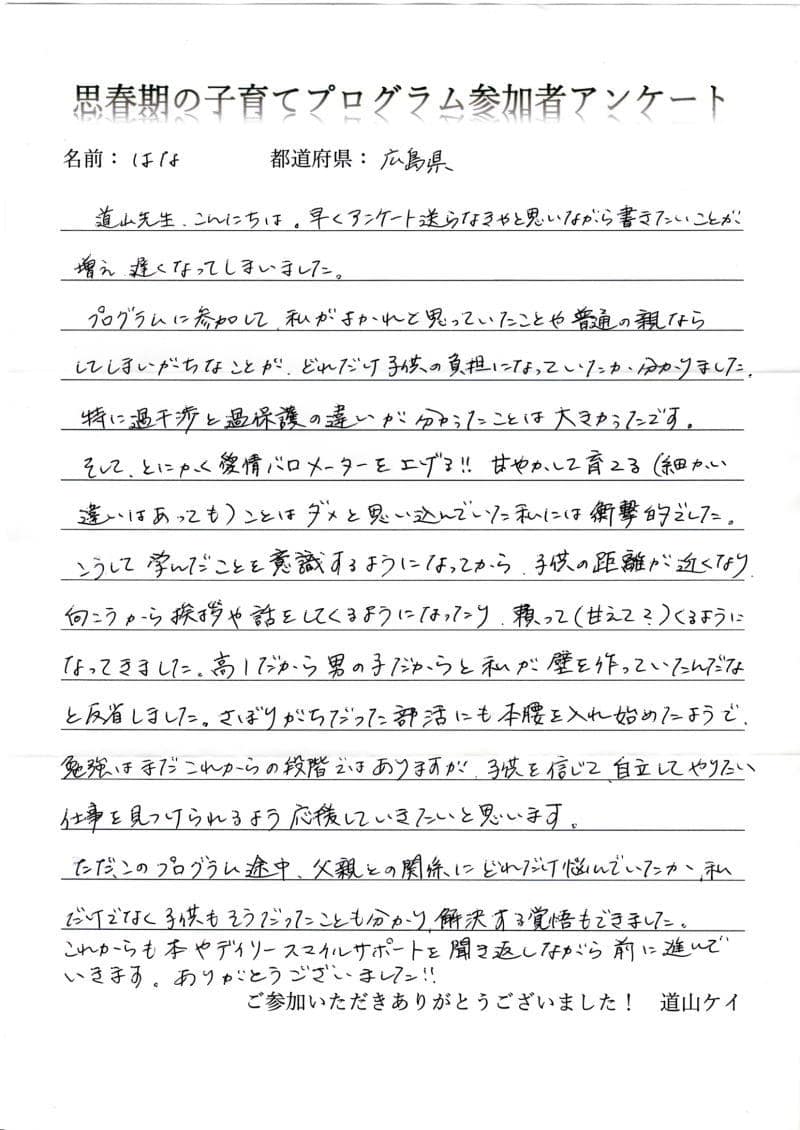 思春期の子育てプログラム参加者アンケート
名前： はな 都道府県： 広島県
道山先生、こんにちは。早くアンケート送らなきゃと思いながら書きたいことが
増え、遅くなってしまいました。
プログラムに参加して、私がよかれと思っていたことや普通の親なら
してしまいがちなことが、どれだけ子供の負担になっていたか、分かりました。
特に過干渉と過保護の違いが分かったことは大きかったです。
そして、とにかく愛情バロメーターを上げる!! 甘やかして育てる(細かい
違いはあっても)ことはダメと思い込んでいた私には衝撃的でした。
こうして学んだことを意識するようになってから、子供の距離が近くなり、
向こうから挨拶や話をしてくるようになったり、頼って(甘えて?)くるように
なってきました。高1だから男の子だからと私が壁を作っていたんだな
と反省しました。さぼりがちだった部活にも本腰を入れ始めたようで、
勉強はまだこれからの段階ではありますが、子供を信じて、自立してやりたい
仕事を見つけられるよう応援していきたいと思います。
ただ、このプログラム途中、父親との関係にどれだけ悩んでいたか、私
だけでなく子供もそうだったことも分かり、解決する覚悟もできました。
これからも本やデイリースマイルサポートを聞き返しながら前に進んで
いきます。ありがとうございました!!
ご参加いただきありがとうございました！ 道山ケイ